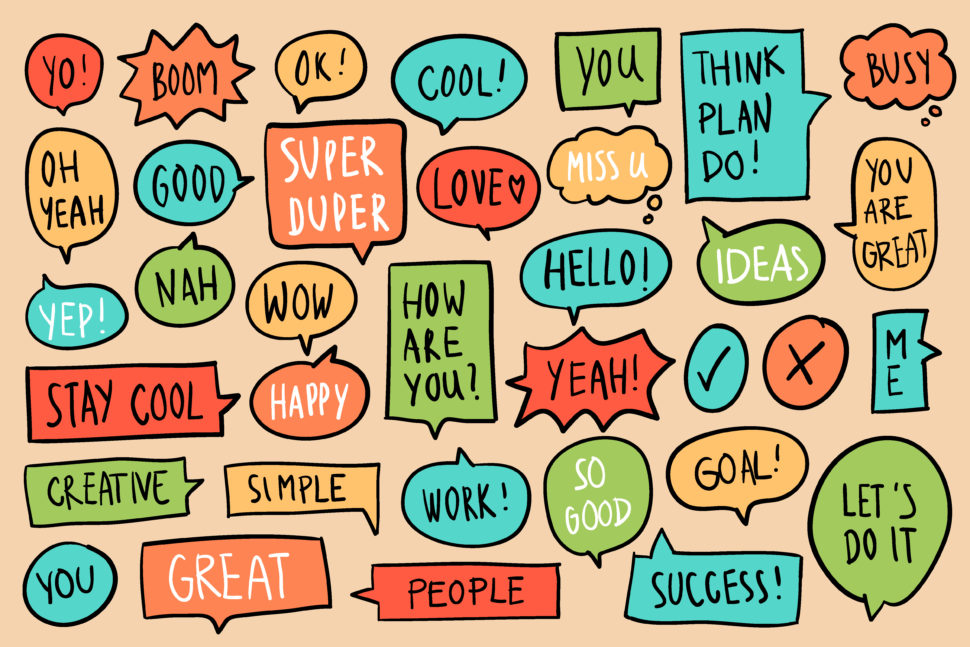 YO!
BOOM
OK!
COOL!
YOU
THINK
PLAN
DO!
BUSY
OH
YEAH
GOOD
SUPER
DUPER
LOVE
MISS U
YOU
ARE
GREAT
YEP!
NAH
WOW
HOW
ARE
YOU?
HELLO!
IDEAS
STAY COOL
HAPPY
YEAH!
M
E
CREATIVE
SIMPLE
WORK!
SO
GOOD
GOAL!
LET'S
DO IT
YOU
GREAT
PEOPLE
SUCCESS!